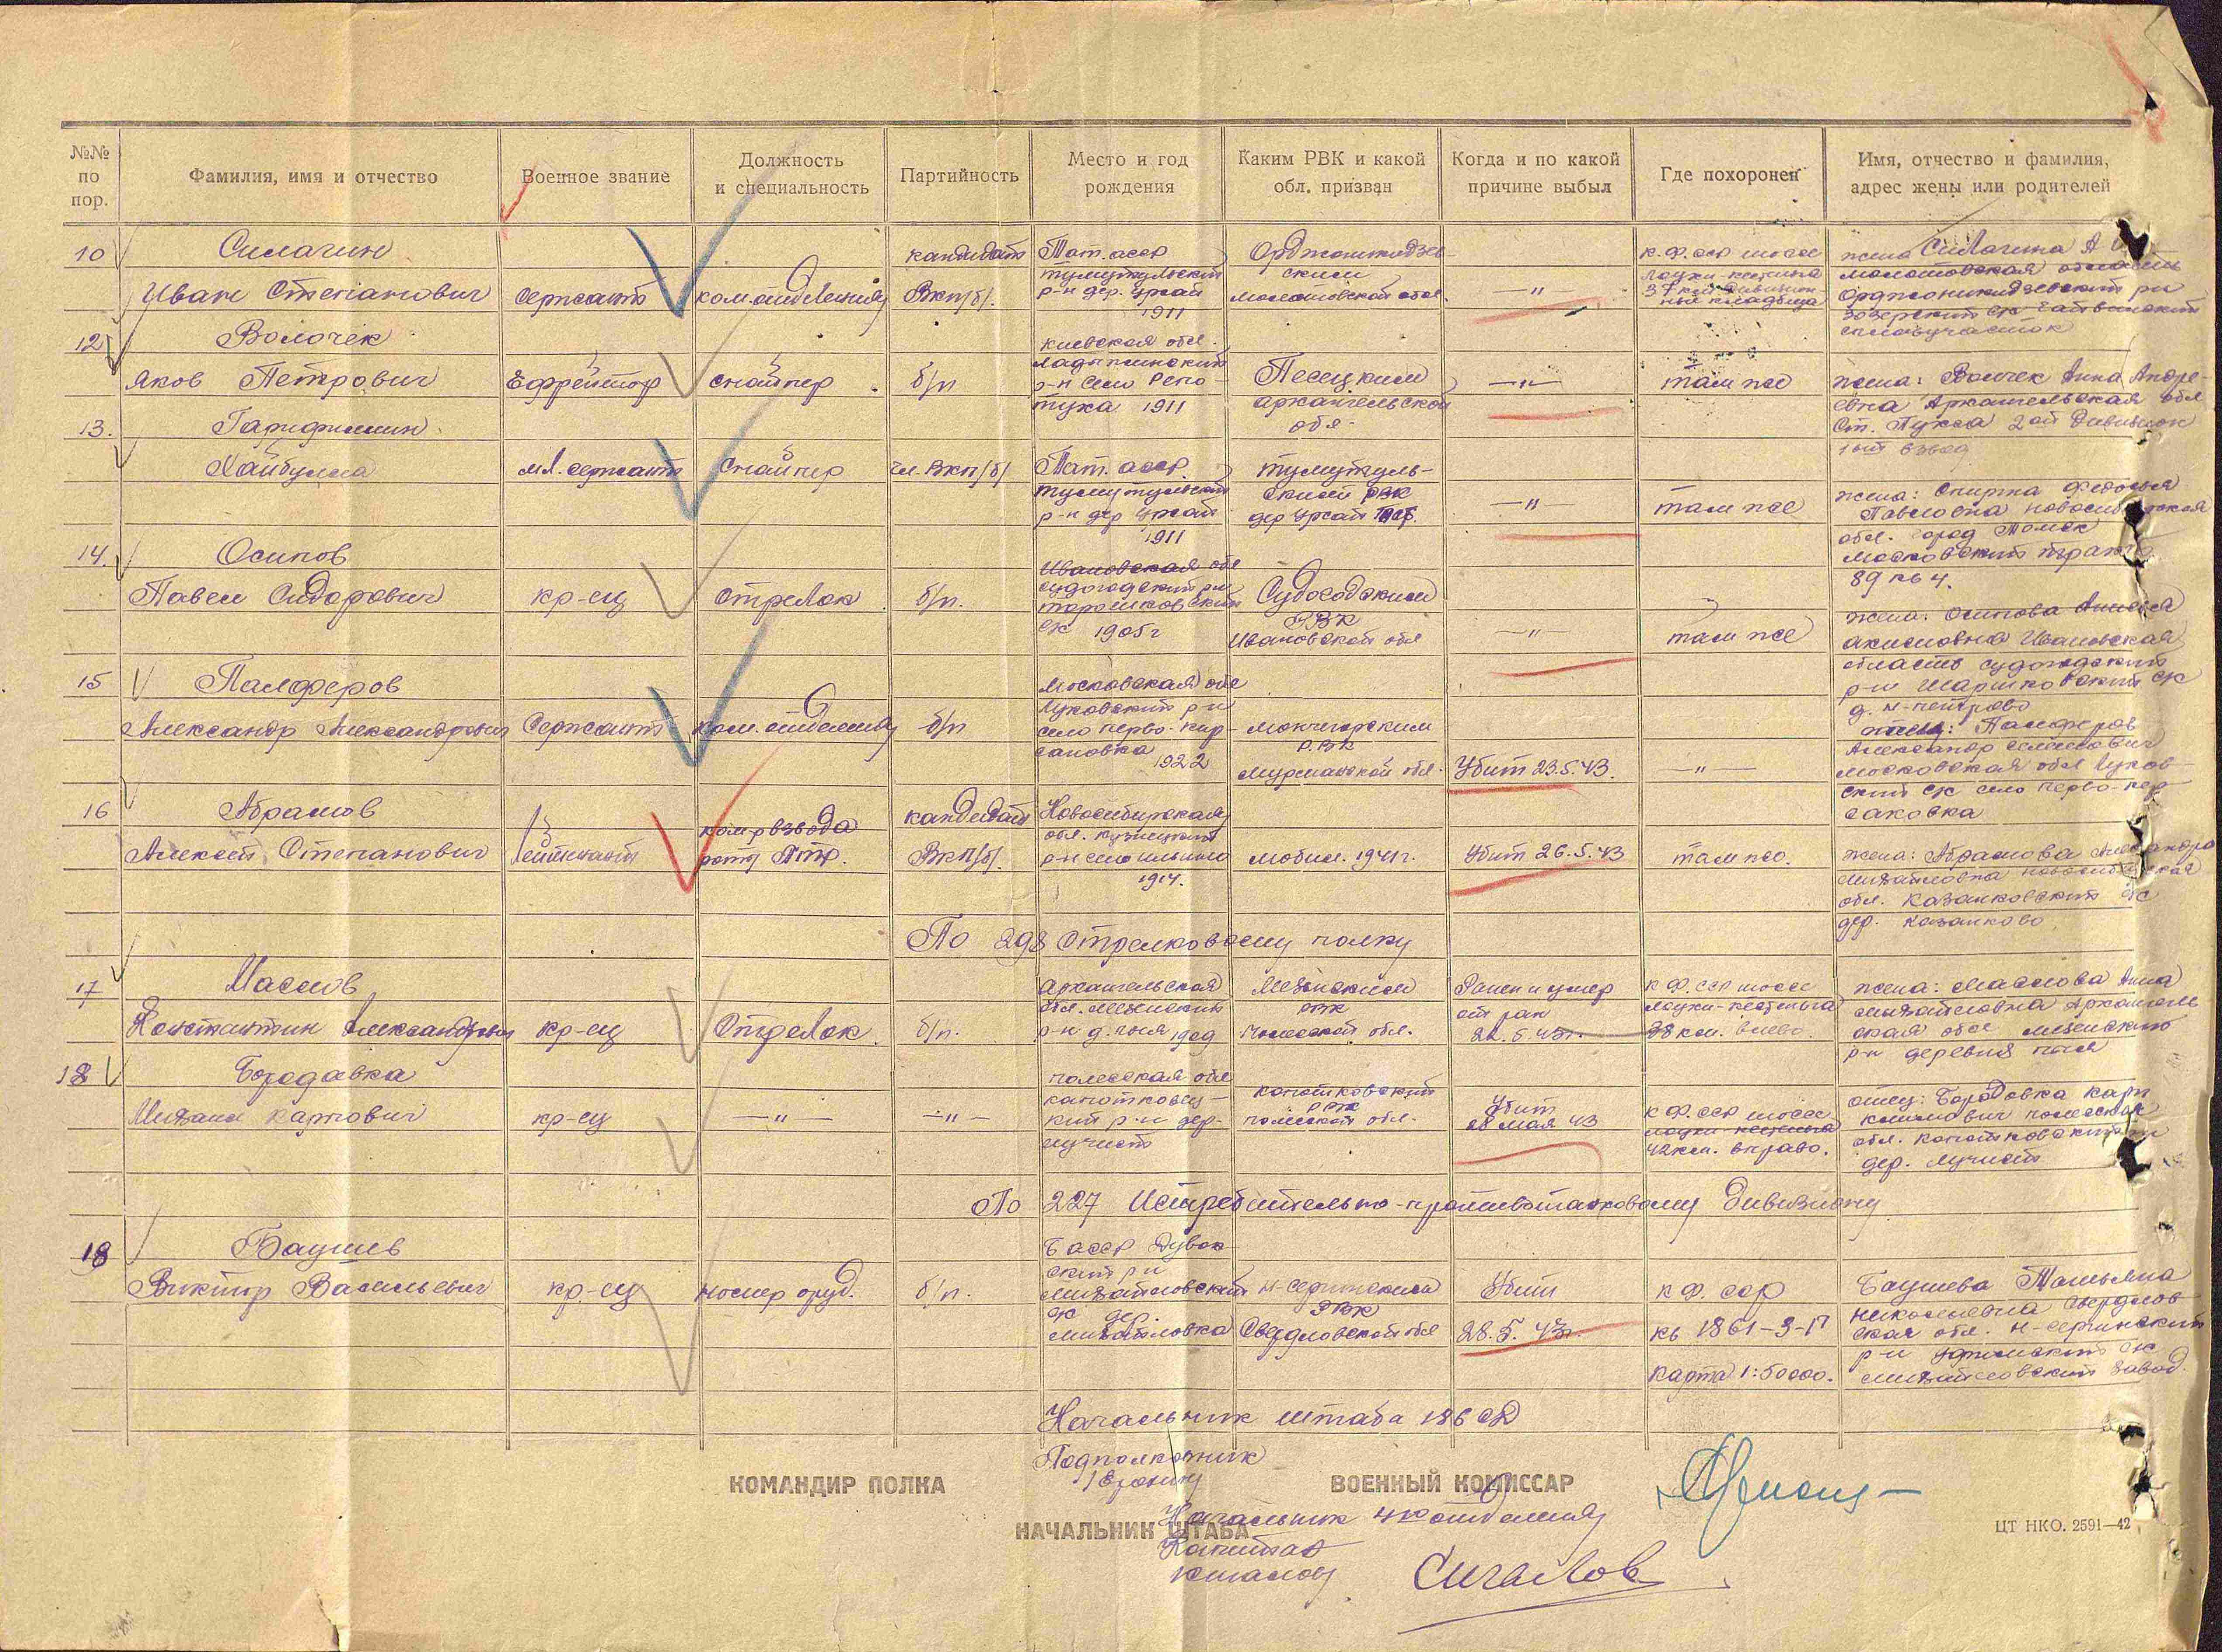 №№ по пор.
Фамилия, имя и отчество
Военное звание
Должность и специальность
Партийность
Место и год рождения
Каким РВК и какой обл. призван
Когда и по какой причине выбыл
Где похоронен
Имя, отчество и фамилия, адрес жены или родителей
10
Силагин
Иван Степанович
Сержант
ком. отделения
кандидат
ВКП/б/.
Тат. асср
р-н дер. Уржай
1911
Орджоникидзев-
ским
Молотовской обл.
—"—
К.Ф.сср шоссе
Лоухи-кестеньга
37 км дивизион-
ное кладбище
жена Силагина А
Молотовская область
Орджоникидзевский р-н
12
Волочек
Яков Петрович
Ефрейтор
снайпер
б/п
киевская обл.
р-н село Репо-
туха 1911
Песецким
архангельской
обл.
—"—
там же
жена: Волчек Анна Андре-
евна Архангельская обл
ст. Пукса 2ой дивизион
1ый взвод
13.
Гарифуллин
Хайбулла
мл. сержант
снайпер
чл. ВКП/б/
Тат. асср
р-н дер Уржай
1911
ским РВК
дер Уржай
—"—
там же
жена: Спирка Федосья
Павловна Новосибирская
обл. город Томск
Московский тракт
89 кв 4.
14.
Осипов
Павел Сидорович
кр-ец
стрелок
б/п.
Ивановская обл
судогодский р-н
ск 1905г
Судогодским
РВК
Ивановской обл
—"—
там же
жена: Осипова
Ивановская
область судогодский
р-н
15
Палферов
Александр Александрович
Сержант
ком. отделения
б/п
Московская обл
Луховский р-н
село перво-кир-
сановка 1922
мончегорским
РВК
Мурманской обл.
Убит 23.5.43.
—"—
отец: Палферов
Александр Семенович
Московская обл Лухов-
ский ск село перво-кер-
сановка
16
Абрамов
Алексей Степанович
Лейтенант
ком-р взвода
роты ПТР.
кандидат
ВКП/б/.
Новосибирская
обл. кузнецкий
р-н село ильино
1914.
мобил. 1941г.
Убит 26.5.43
там же.
жена: Абрамова Александра
Михайловна новосибирская
обл. Казанковский ск
дер. Казанково
По 298 Стрелковому полку
17
Маслов
Константин Александрович
кр-ец
Стрелок
б/п.
Архангельская
обл. Мезенский
1909
Мезенским
РВК
Ранен и умер
от ран
22.5.43г.
К Ф. ССР шоссе
Лоухи-кестеньга
38 км. влево.
жена: Маслова Анна
Михайловна Архангель
ская обл мезенский
р-н деревня
18
Бородавка
Михаил Карпович
кр-ец
—"—
—"—
полесская обл
копотковец-
кий р-н дер.
лучист
копотковский
РВК
полесской обл.
Убит
28 мая 43
К Ф. сср шоссе
лоухи кестеньга
42 км. вправо.
отец: Бородовка Карп
обл.
дер. лучист
По 227 Истребительно-противотанковому дивизиону
18
Баушев
Виктор Васильевич
кр-ец
номер оруд.
б/п.
Б асср Дуван-
ский р-н
михайловский
ск дер.
михайловка
н-сергинским
РВК
Свердловской обл
Убит
28.5.43г.
К Ф. сср
кв 1861-3-П
карта 1:50000.
Баушева Татьяна
николаевна свердлов-
ская обл. н-сергинский
р-н уфимский ск
михайловский завод.
Начальник штаба 186 СД
Подполковник
КОМАНДИР ПОЛКА
ВОЕННЫЙ КОМИССАР
НАЧАЛЬНИК ШТАБА
Начальник 4го отделения
Капитан
ЦТ НКО. 2591—42